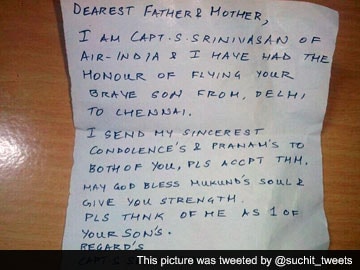 DEAREST FATHER & MOTHER,
I AM CAPT. S. SRINIVASAN OF
AIR-INDIA & I HAVE HAD THE
HONOUR OF FLYING YOUR
BRAVE SON FROM, DELHI
TO CHENNAI.
I SEND MY SINCEREST
CONDOLENCE'S & PRANAM'S TO
BOTH OF YOU, PLS ACCPT THM.
MAY GOD BLESS MUKUND'S SOUL &
GIVE YOU STRENGTH.
PLS THNK OF ME AS 1 OF
YOUR SON'S.
REGARD'S
CAPT. S.
This picture was tweeted by @suchit_tweets